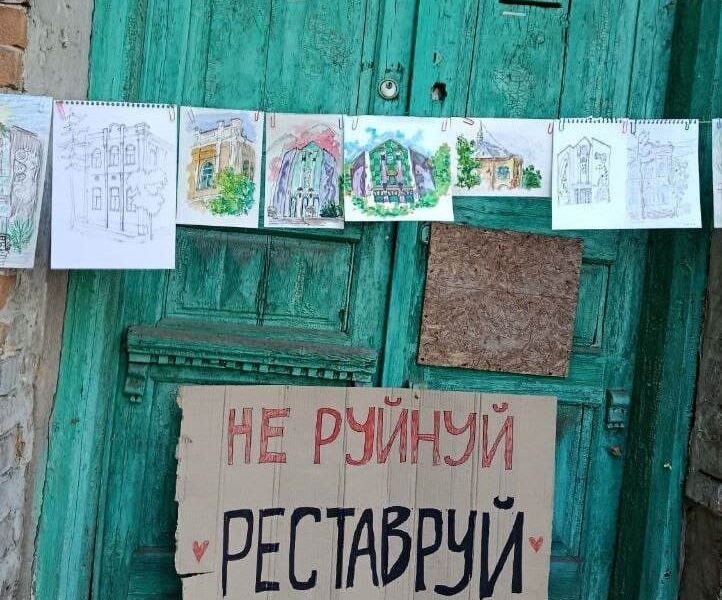 НЕ РУЙНУЙ
РЕСТАВРУЙ